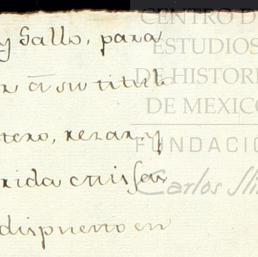 y Gallo, para
a su titul
tero, rezar, y
rida en
dispuesto en
CENTRO D
ESTUDIOS
DE HISTORI
DE MEXICO
FUNDACIÓ
Carlos Sli